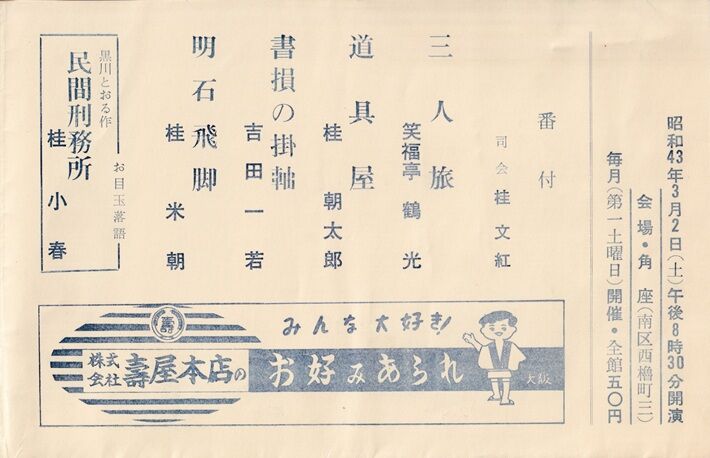 昭和43年3月2日(土)午後8時30分開演
会場・角座(南区西櫓町三)
毎月(第一土曜日)開催・全館五〇円
番付
司会 桂文紅
三人旅
笑福亭鶴光
道具屋
桂朝太郎
書損の掛軸
吉田一若
明石飛脚
桂米朝
お目玉落語
黒川とおる作
民間刑務所
桂小春
壽
みんな大好き!
株式会社 壽屋本店の
お好みあられ
大阪